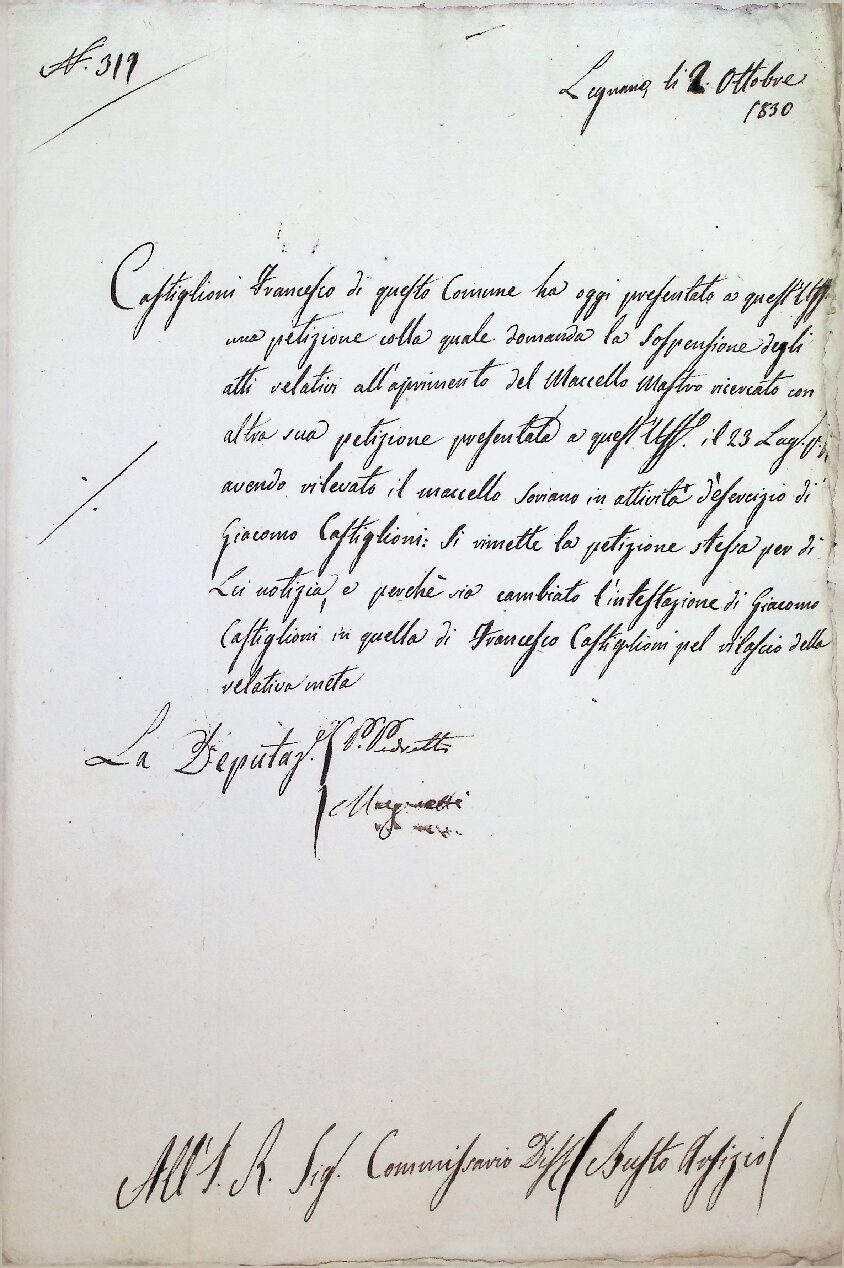 N. 319
Legnano, li 2. Ottobre
1830
Castiglioni Francesco di questo Comune ha oggi presentato a quest'Uff.
una petizione colla quale domanda la sospensione degli
atti relativi all'aprimento del Maccello Mastro ricercato con
altra sua petizione presentata a quest'Uff.° il 23 Lug.
avendo rilevato il maccello Soriano in attività d'esercizio di
Giacomo Castiglioni: Si rimette la petizione stessa per di
Lei notizia, e perchè sia cambiato l'intestazione di Giacomo
Castiglioni in quella di Francesco Castiglioni pel rilascio della
relativa meta
La Deputaz.e
All'I. R. Sig. Commissario Dist. (Busto Arsizio)